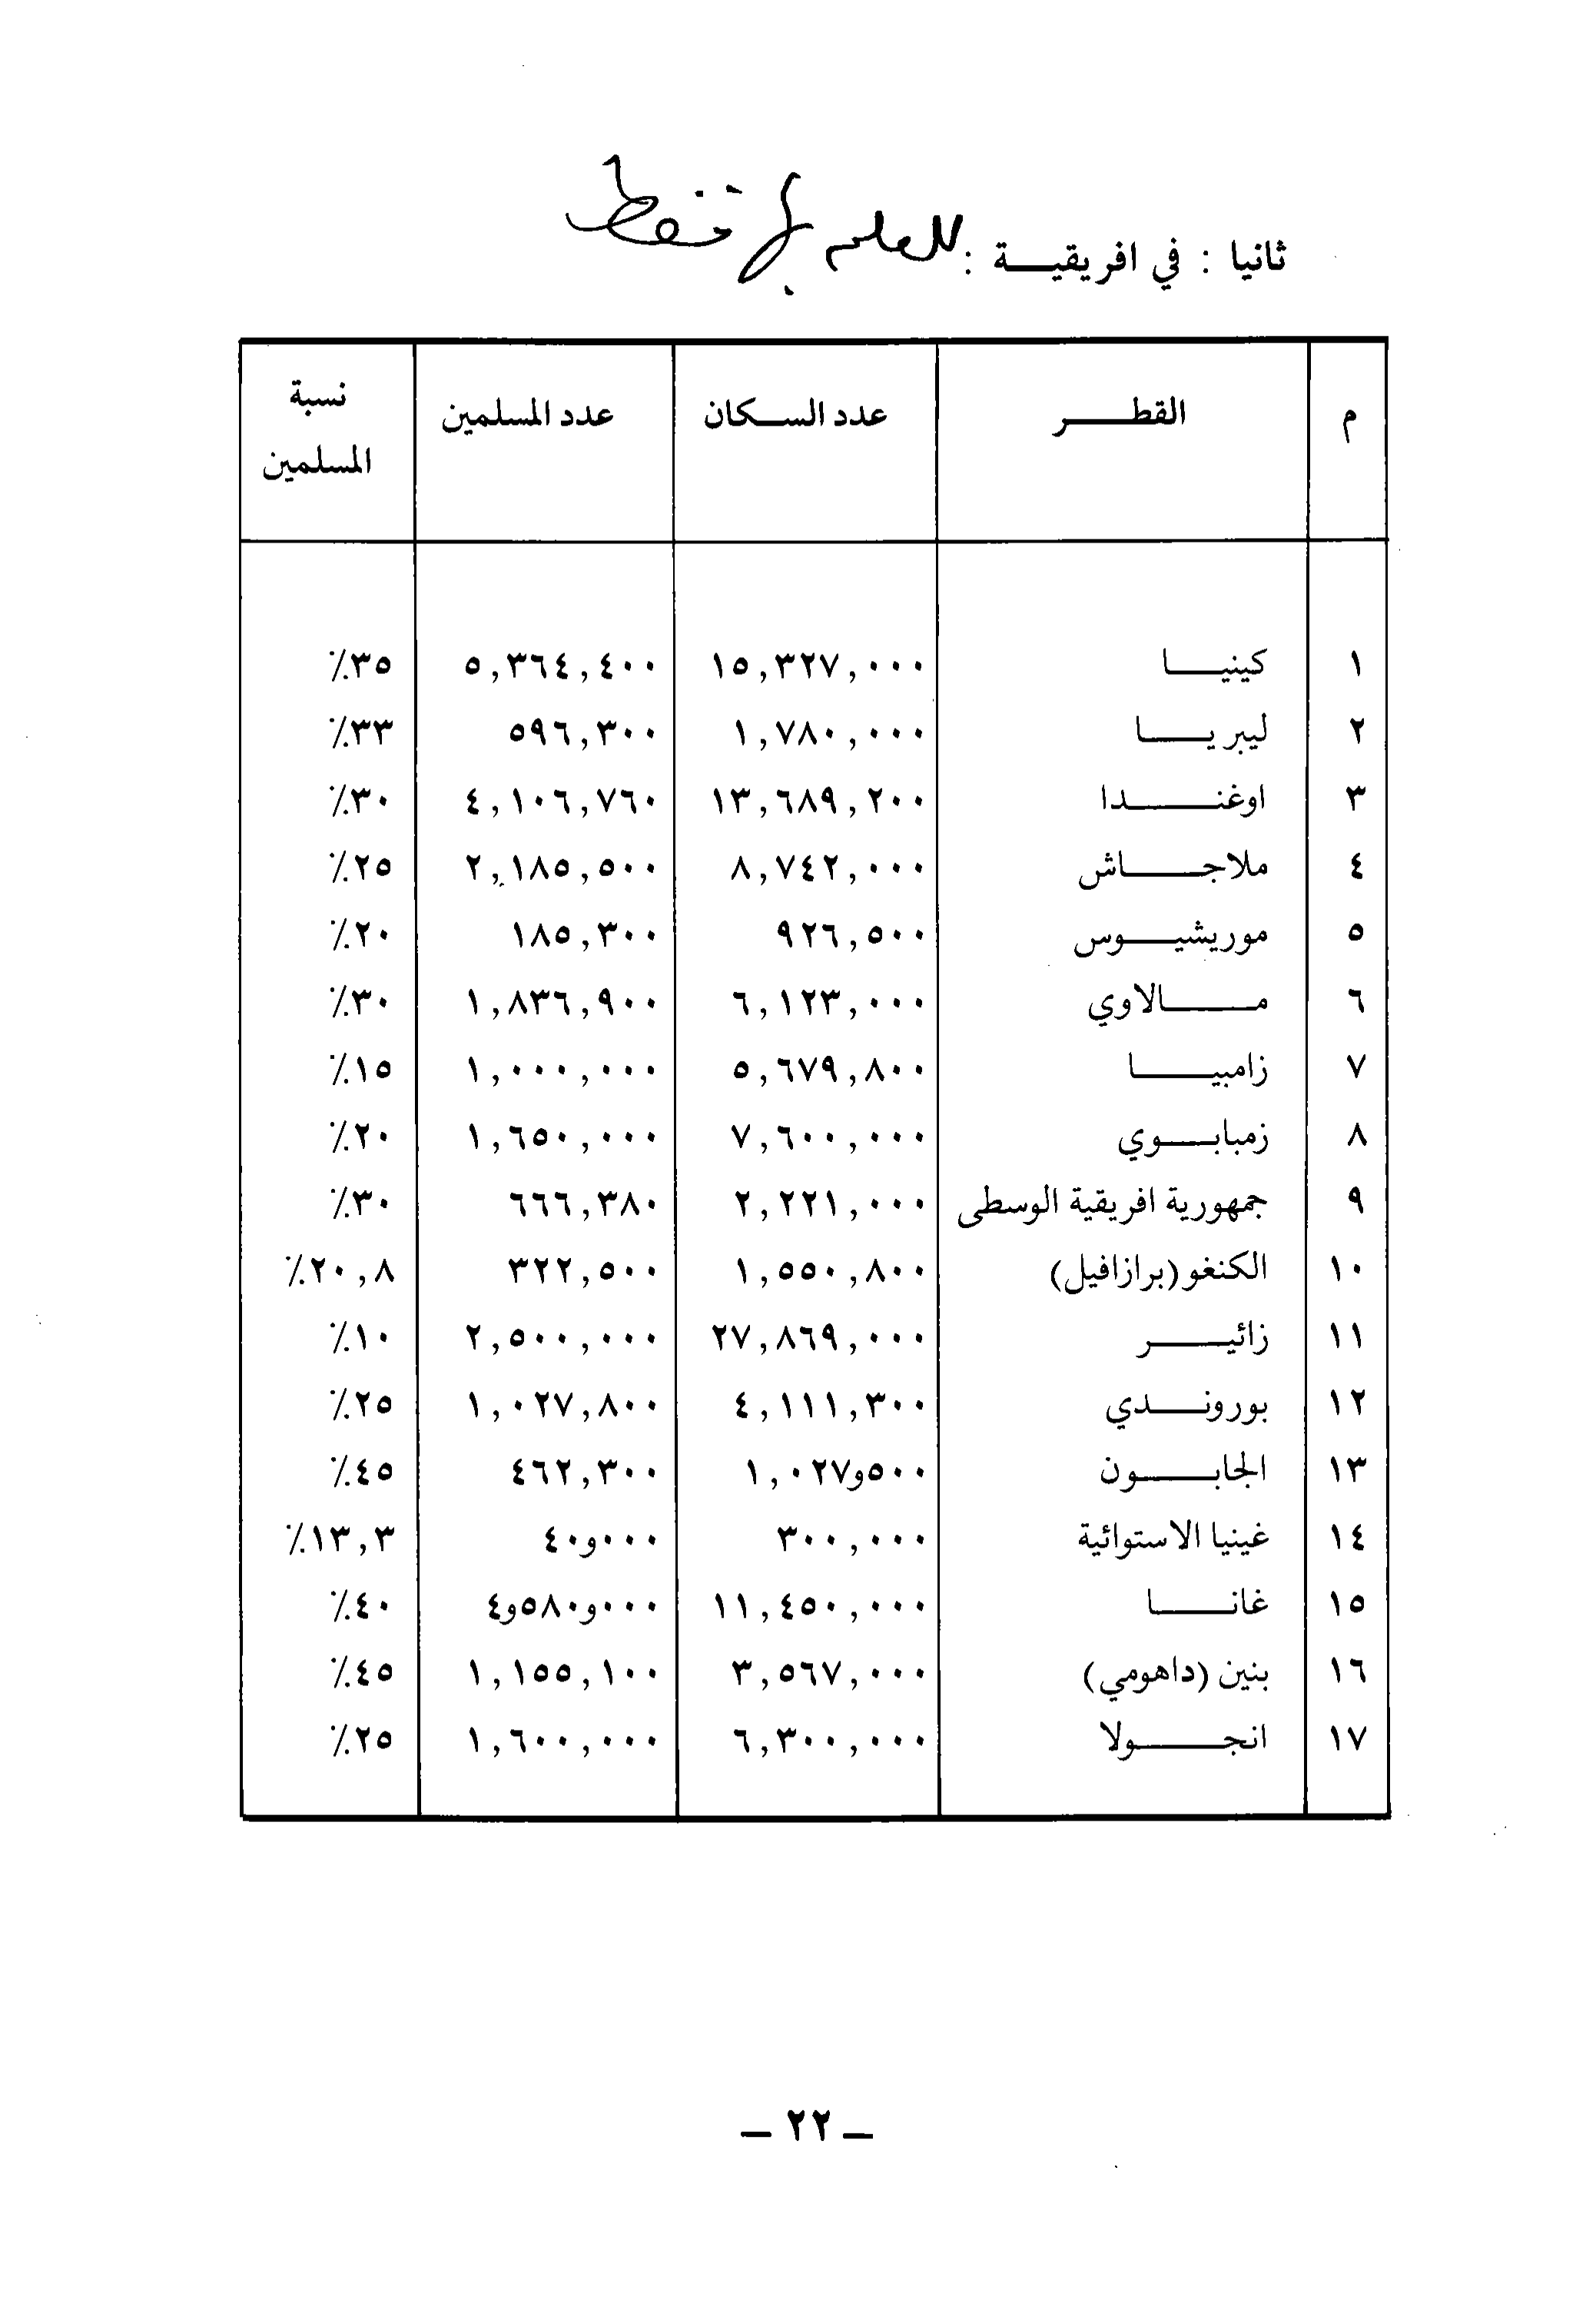 ثانيا : في افريقيـــة : للعلم بها فقط
م القطــر عدد الســكان عدد المسلمين نسبة المسلمين
١ كينيــا ١٥,٣٢٧,٠٠٠ ٥,٣٦٤,٤٠٠ ٣٥٪
٢ ليبريــا ١,٧٨٠,٠٠٠ ٥٩٦,٣٠٠ ٣٣٪
٣ اوغنــدا ١٣,٦٨٩,٢٠٠ ٤,١٠٦,٧٦٠ ٣٠٪
٤ ملاجــاش ٨,٧٤٢,٠٠٠ ٢,١٨٥,٥٠٠ ٢٥٪
٥ موريشيــوس ٩٢٦,٥٠٠ ١٨٥,٣٠٠ ٢٠٪
٦ مــالاوي ٦,١٢٣,٠٠٠ ١,٨٣٦,٩٠٠ ٣٠٪
٧ زامبيــا ٥,٦٧٩,٨٠٠ ١,٠٠٠,٠٠٠ ١٥٪
٨ زمبابــوي ٧,٦٠٠,٠٠٠ ١,٦٥٠,٠٠٠ ٢٠٪
٩ جمهورية افريقية الوسطى ٢,٢٢١,٠٠٠ ٦٦٦,٣٨٠ ٣٠٪
١٠ الكنغو(برازافيل) ١,٥٥٠,٨٠٠ ٣٢٢,٥٠٠ ٢٠,٨٪
١١ زائيــر ٢٧,٨٦٩,٠٠٠ ٢,٥٠٠,٠٠٠ ١٠٪
١٢ بورونــدي ٤,١١١,٣٠٠ ١,٠٢٧,٨٠٠ ٢٥٪
١٣ الجابــون ٥٠٠و١,٠٢٧ ٤٦٢,٣٠٠ ٤٥٪
١٤ غينيا الاستوائية ٣٠٠,٠٠٠ ٠٠٠و٤٠ ١٣,٣٪
١٥ غانــا ١١,٤٥٠,٠٠٠ ٠٠٠و٥٨٠و٤ ٤٠٪
١٦ بنين (داهومي) ٣,٥٦٧,٠٠٠ ١,١٥٥,١٠٠ ٤٥٪
١٧ انجــولا ٦,٣٠٠,٠٠٠ ١,٦٠٠,٠٠٠ ٢٥٪
ـ ٢٢ ـ